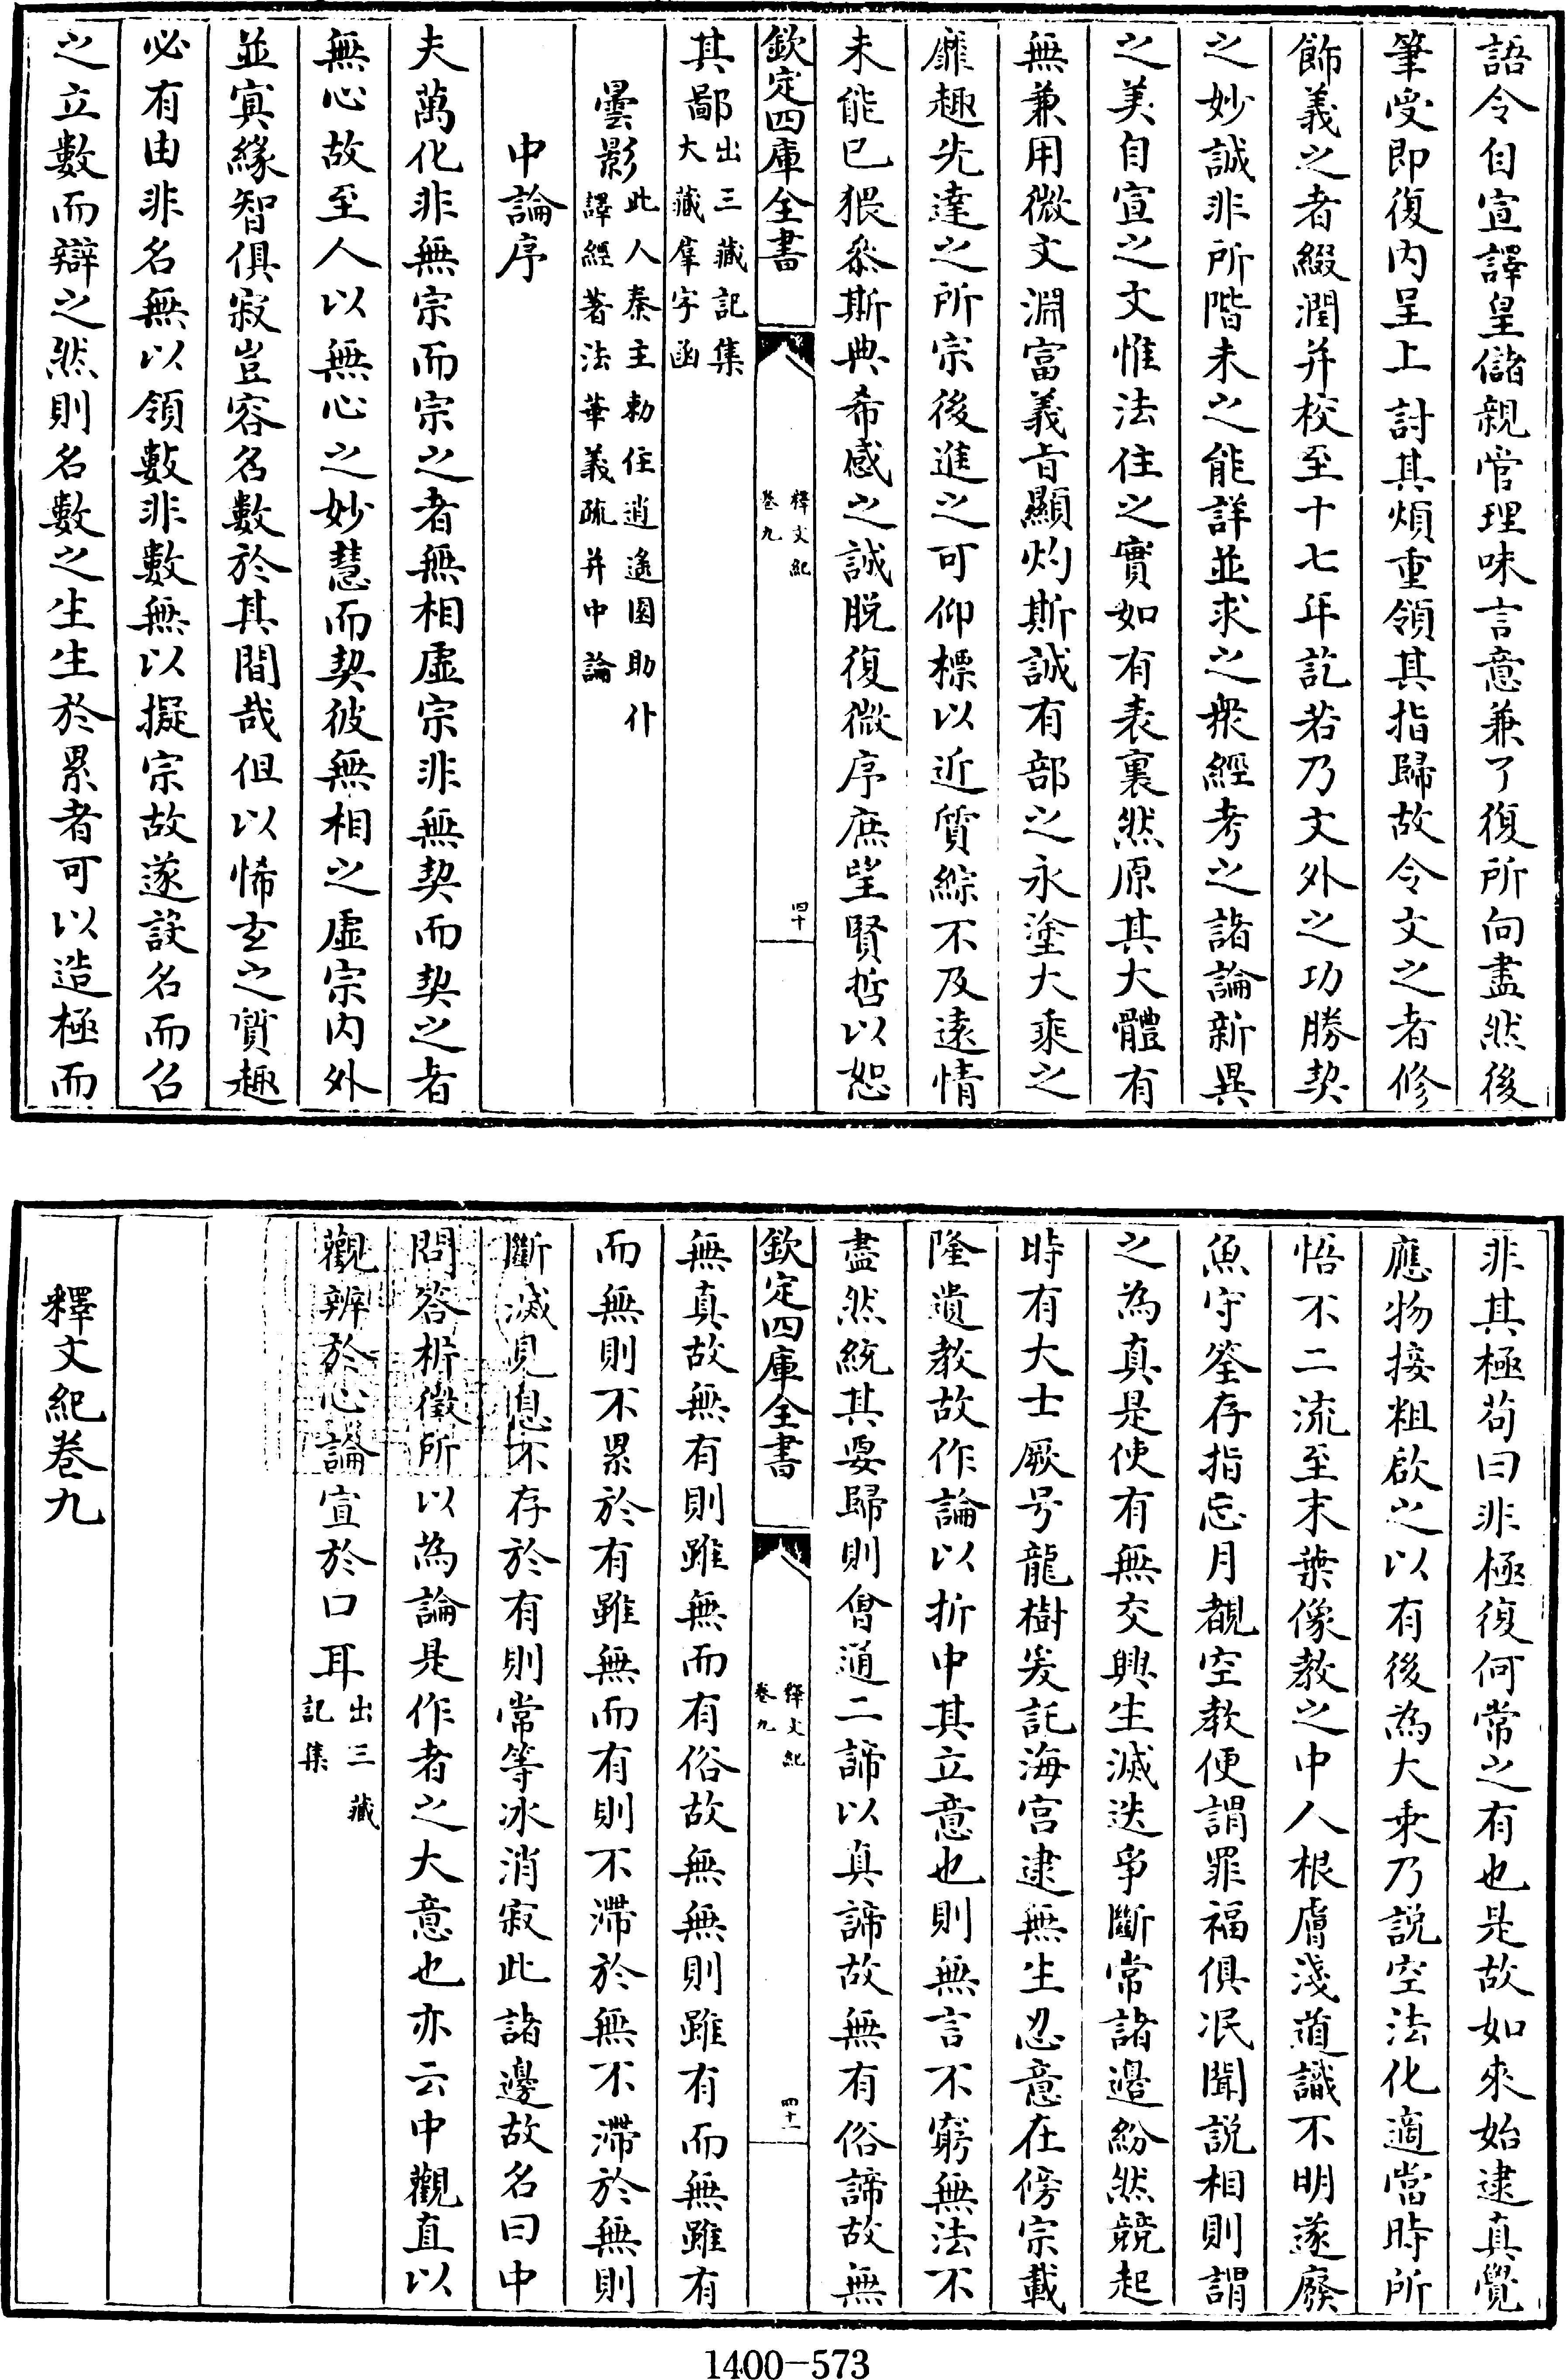 語令自宣譯皇儲親管理味言意兼了復所向盡然後
筆受即復內呈上討其煩重領其指歸故令文之者修
飾義之者綴潤并校至十七年訖若乃文外之功勝契
之妙誠非所階未之能詳並求之衆經考之諸論新異
之美自宣之文惟法住之實如有表裏然原其大體有
無兼用微文淵富義旨顯灼斯誠有部之永塗大乘之
靡趣先達之所宗後進之可仰標以近質綜不及遠情
未能巳猥參斯典希感之誠脱復微序庶望賢哲以恕
欽定四庫全書
釋文紀
卷九
四十
其鄙出三藏記集
大藏羣字函
曇影此人秦主勅住逍遙園助什
譯經著法華義疏并中論
中論序
夫萬化非無宗而宗之者無相虛宗非無契而契之者
無心故至人以無心之妙慧而契彼無相之虛宗內外
並冥緣智俱寂豈容名數於其間哉但以悕玄之質趣
必有由非名無以領數非數無以擬宗故遂設名而召
之立數而辯之然則名數之生生於累者可以造極而
非其極苟曰非極復何常之有也是故如來始逮真覺
應物接粗啟之以有後為大乘乃說空法化適當時所
悟不二流至末葉像教之中人根膚淺道識不明遂廢
魚守筌存指忘月覩空教便謂罪福俱泯聞說相則謂
之為真是使有無交興生滅迭爭斷常諸邊紛然競起
時有大士厥号龍樹爰託海宮逮無生忍意在傍宗載
隆遺教故作論以折中其立意也則無言不窮無法不
盡然統其要歸則會通二諦以真諦故無有俗諦故無
欽定四庫全書
釋文紀
卷九
四十一
無真故無有則雖無而有俗故無無則雖有而無雖有
而無則不累於有雖無而有則不滯於無不滯於無則
斷滅見息不存於有則常等冰消寂此諸邊故名曰中
問答析徵所以為論是作者之大意也亦云中觀直以
觀辨於心論宣於口耳出三藏
記集
釋文紀卷九
1400-573